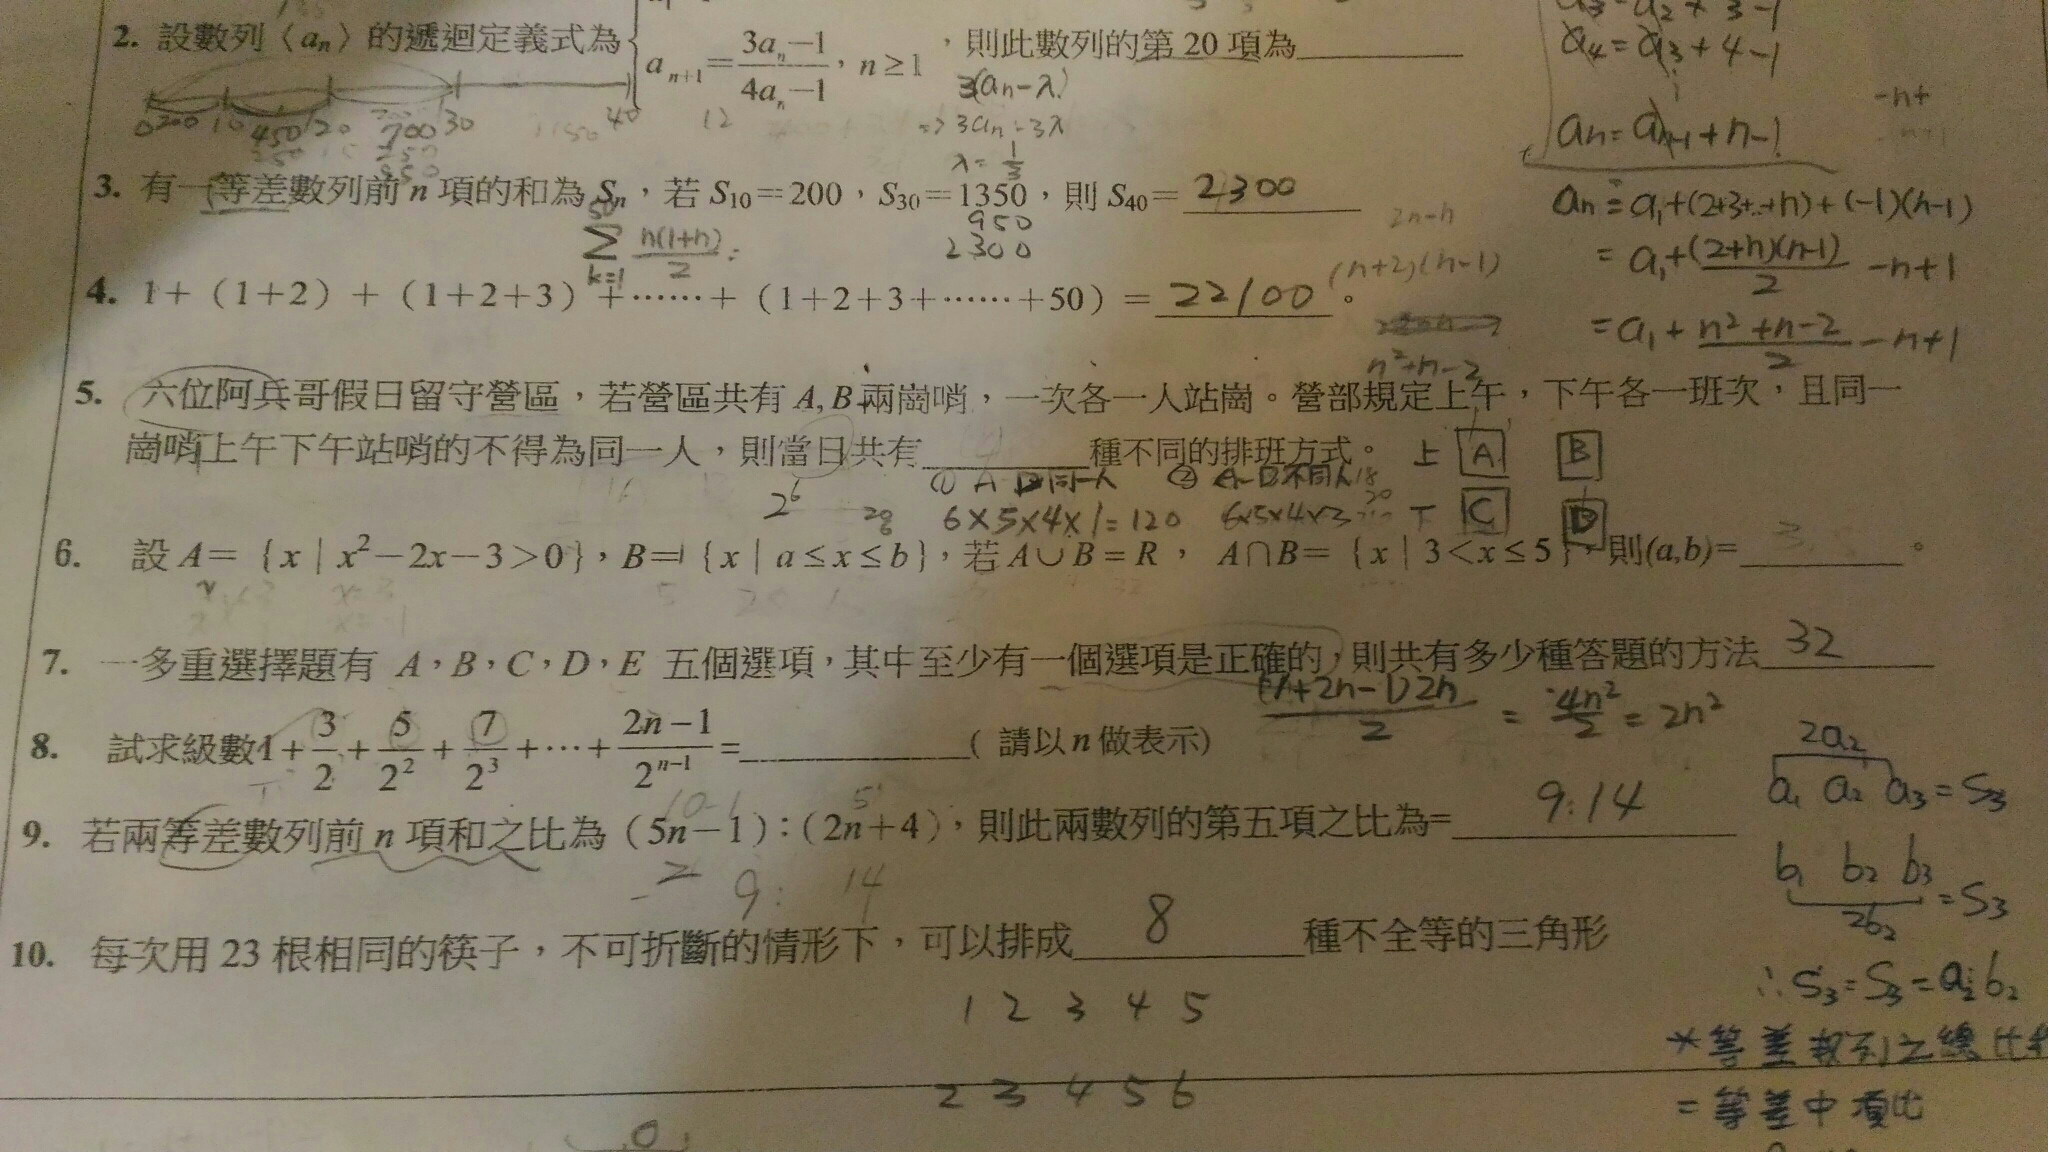 2. 設數列〈aₙ〉的遞迴定義式為{ aₙ₊₁=(3aₙ−1)/(4aₙ−1),n≥1 ,則此數列的第 20 項為
3(aₙ−λ)
=> 3aₙ−3λ
λ=1/3
0 200 10 450 20 700 30 40
a₄=a₃+4−1
aₙ=aₙ₋₁+n−1
3. 有一等差數列前 n 項的和為 Sₙ,若 S₁₀=200,S₃₀=1350,則 S₄₀= 2300
950
2300
aₙ=a₁+(2+3+..+n)+(−1)(n−1)
=a₁+(2+n)(n−1)/2 −n+1
=a₁+(n²+n−2)/2 −n+1
50 Σ k=1 n(1+n)/2
(n+2)(n−1)
4. 1+(1+2)+(1+2+3)+……+(1+2+3+……+50)= 22100 。
n²+n−2
5. 六位阿兵哥假日留守營區,若營區共有 A, B 兩崗哨,一次各一人站崗。營部規定上午,下午各一班次,且同一
崗哨上午下午站哨的不得為同一人,則當日共有 種不同的排班方式。
上 A B
下 C D
2⁶
6×5×4×1=120 6×5×4×3
6. 設 A={x | x²−2x−3>0},B={x | a≤x≤b},若 A∪B=R, A∩B={x | 3<x≤5},則(a,b)= 。
7. 一多重選擇題有 A,B,C,D,E 五個選項,其中至少有一個選項是正確的,則共有多少種答題的方法 32
(1+2n−1)2n/2 = 4n²/2 = 2n²
8. 試求級數1+3/2+5/2²+7/2³+⋯+(2n−1)/2ⁿ⁻¹= ( 請以 n 做表示)
2a₂
a₁ a₂ a₃=S₃
9. 若兩等差數列前 n 項和之比為(5n−1):(2n+4),則此兩數列的第五項之比為= 9:14
9: 14
b₁ b₂ b₃=S₃
2b₂
10. 每次用 23 根相同的筷子,不可折斷的情形下,可以排成 8 種不全等的三角形
∴S₃=S₃=a₂:b₂
1 2 3 4 5
2 3 4 5 6
*等差數列之總比
=等差中項比